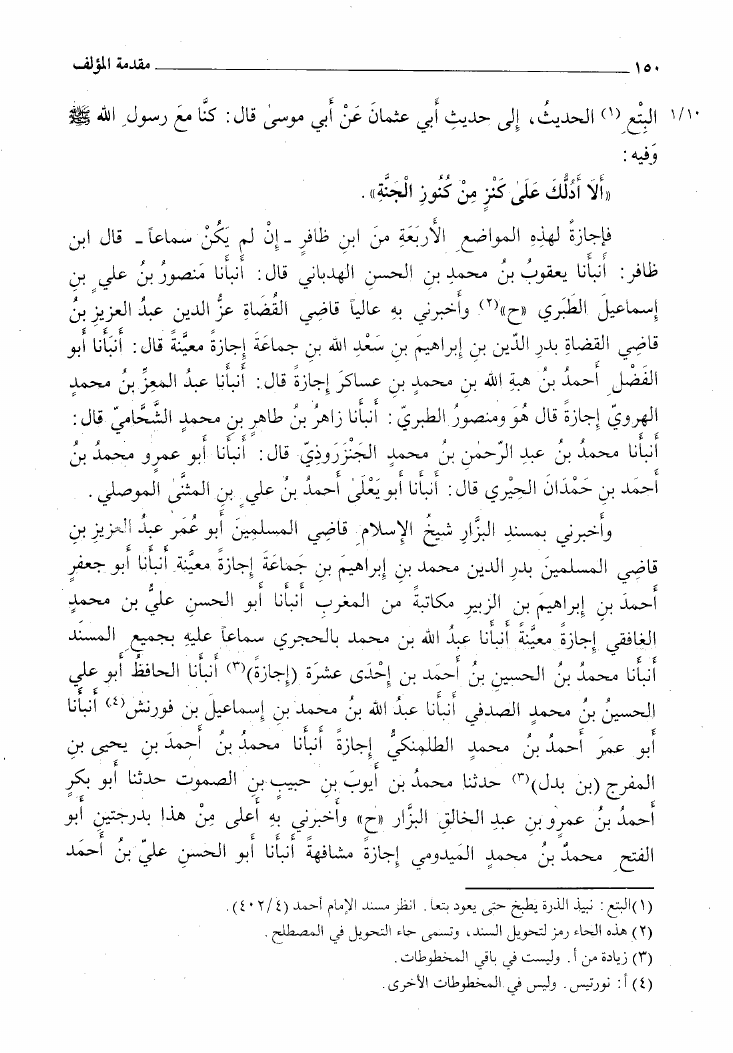 ١٥٠ ــــــــــــــــــــــــــــــــــــــــــــــــــــ مقدمة المؤلف
١/١٠ البِتْعِ (١) الحديثُ، إلى حديثِ أبي عثمانَ عَنْ أبي موسىٰ قال: كنَّا معَ رسولِ الله ﷺ
وَفيه:
«أَلَا أَدُلُّكَ عَلَىٰ كَنْزٍ مِنْ كُنُوزِ الْجَنَّةِ».
فإجازةً لهذِهِ المواضعِ الأربَعَةِ منَ ابنِ ظافرٍ ـ إنْ لم يَكُنْ سماعاً ـ قال ابن
ظافر: أنبأنا يعقوبُ بنُ محمدِ بنِ الحسنِ الهدباني قال: أنبأنا مَنصورُ بنُ علي بنِ
إسماعيلَ الطَبَري «ح»(٢) وأخبرني بهِ عالياً قاضِي القُضَاةِ عزُّ الدين عبدُ العزيزِ بنُ
قاضِي القضاةِ بدرِ الدّينِ بنِ إبراهيمَ بنِ سَعْدِ الله بنِ جماعَةَ إجازةً معيَّنةً قال: أنبَأنا أبو
الفَضْلِ أحمدُ بنُ هبةِ الله بنِ محمدِ بنِ عساكرَ إجازةً قال: أنبأنا عبدُ المعزِّ بنُ محمدٍ
الهرويّ إجازةً قال هُوَ ومنصورُ الطبريّ: أنبأنا زاهرُ بنُ طاهرِ بنِ محمدٍ الشَّحاميّ قال:
أنبأنا محمدُ بنُ عبدِ الرّحمٰنِ بنُ محمدٍ الجَنْزَروذِيّ قال: أنبأنا أبو عمرٍو محمدُ بنُ
أحمَد بنِ حَمْدَانَ الحِيْري قال: أنبأنا أبو يَعْلَىٰ أحمدُ بنُ علي بنِ المثنَّىٰ الموصلي.
وأخبرني بمسندِ البزَّارِ شيخُ الإسلامِ قاضِي المسلمينَ أبو عُمَرَ عبدُ العزيزِ بنِ
قاضِي المسلمينَ بدرِ الدين محمدِ بنِ إبراهيمَ بنِ جَماعَةَ إجازةً معيَّنة أنبأنا أبو جعفرٍ
أحمدَ بنِ إبراهيمَ بن الزبيرِ مكاتبةً من المغربِ أنبأنا أبو الحسنِ عليُّ بن محمدٍ
الغافقي إجازةً معيَّنةً أنبأنا عبدُ الله بن محمد بالحجري سماعاً عليهِ بجميعِ المسنَد
أنبأنا محمدُ بنُ الحسينِ بنُ أحمَد بن إحْدَى عشرَة (إجازةً)(٣) أنبأنا الحافظُ أبو علي
الحسينُ بنُ محمدٍ الصدفي أنبأنا عبدُ الله بنُ محمد بنِ إسماعيلَ بنِ فورنش(٤) أنبأنا
أبو عمرَ أحمدُ بنُ محمدٍ الطلمنكيُّ إجازةً أنبأنا محمدُ بنُ أحمدَ بنِ يحيى بنِ
المفرجِ (بنِ بدل)(٣) حدثنا محمدُ بن أيوبَ بنِ حبيبِ بنِ الصموت حدثنا أبو بكرٍ
أحمدُ بنُ عمرِو بنِ عبدِ الخالقِ البزَّار «ح» وأخبرني بهِ أعلى مِنْ هذا بدرجتينِ أبو
الفتح محمدُ بنُ محمدٍ المَيدومي إجازةً مشافهةً أنبأنا أبو الحسنِ عليّ بنُ أحمَدَ
(١) البتع: نبيذ الذرة يطبخ حتى يعود بتعا. انظر مسند الإمام أحمد (٤٠٢/٤).
(٢) هذه الحاء رمز لتحويل السند، وتسمى حاء التحويل في المصطلح.
(٣) زيادة من أ. وليست في باقي المخطوطات.
(٤) أ: نورتيس. وليس في المخطوطات الأخرى.